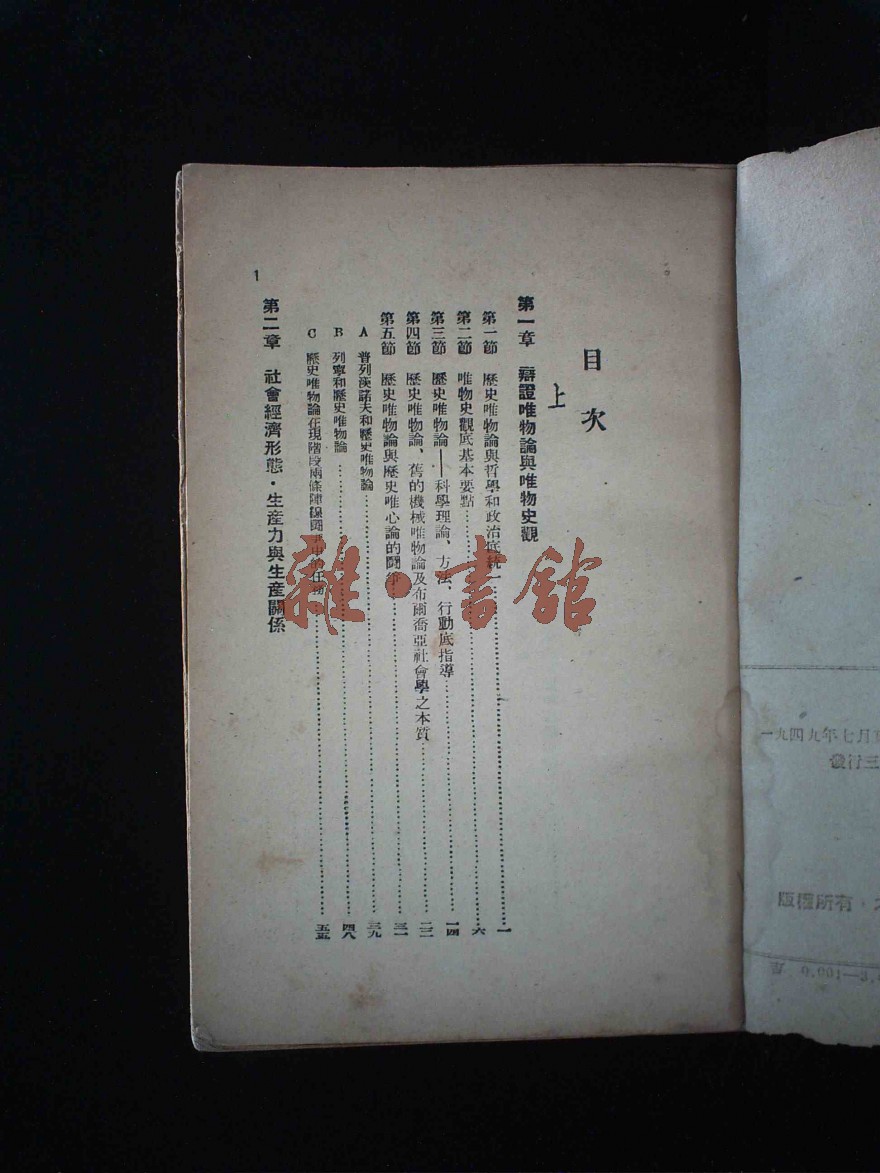 目次
上
第一章 辯證唯物論與唯物史觀
第一節 歷史唯物論與哲學和政治底統一……一
第二節 唯物史觀底基本要點……六
第三節 歷史唯物論——科學理論、方法、行動底指導……一四
第四節 歷史唯物論、舊的機械唯物論及布爾喬亞社會學之本質……二二
第五節 歷史唯物論與歷史唯心論的鬪爭……三一
A 普列漢諾夫和歷史唯物論……三九
B 列寧和歷史唯物論……四八
C 歷史唯物論在現階段兩條陣線鬪爭中的任務……五五
第二章 社會經濟形態・生產力與生產關係
1
雜・書館
一九四九年七月
發行三
版權所有・
0,001—3,